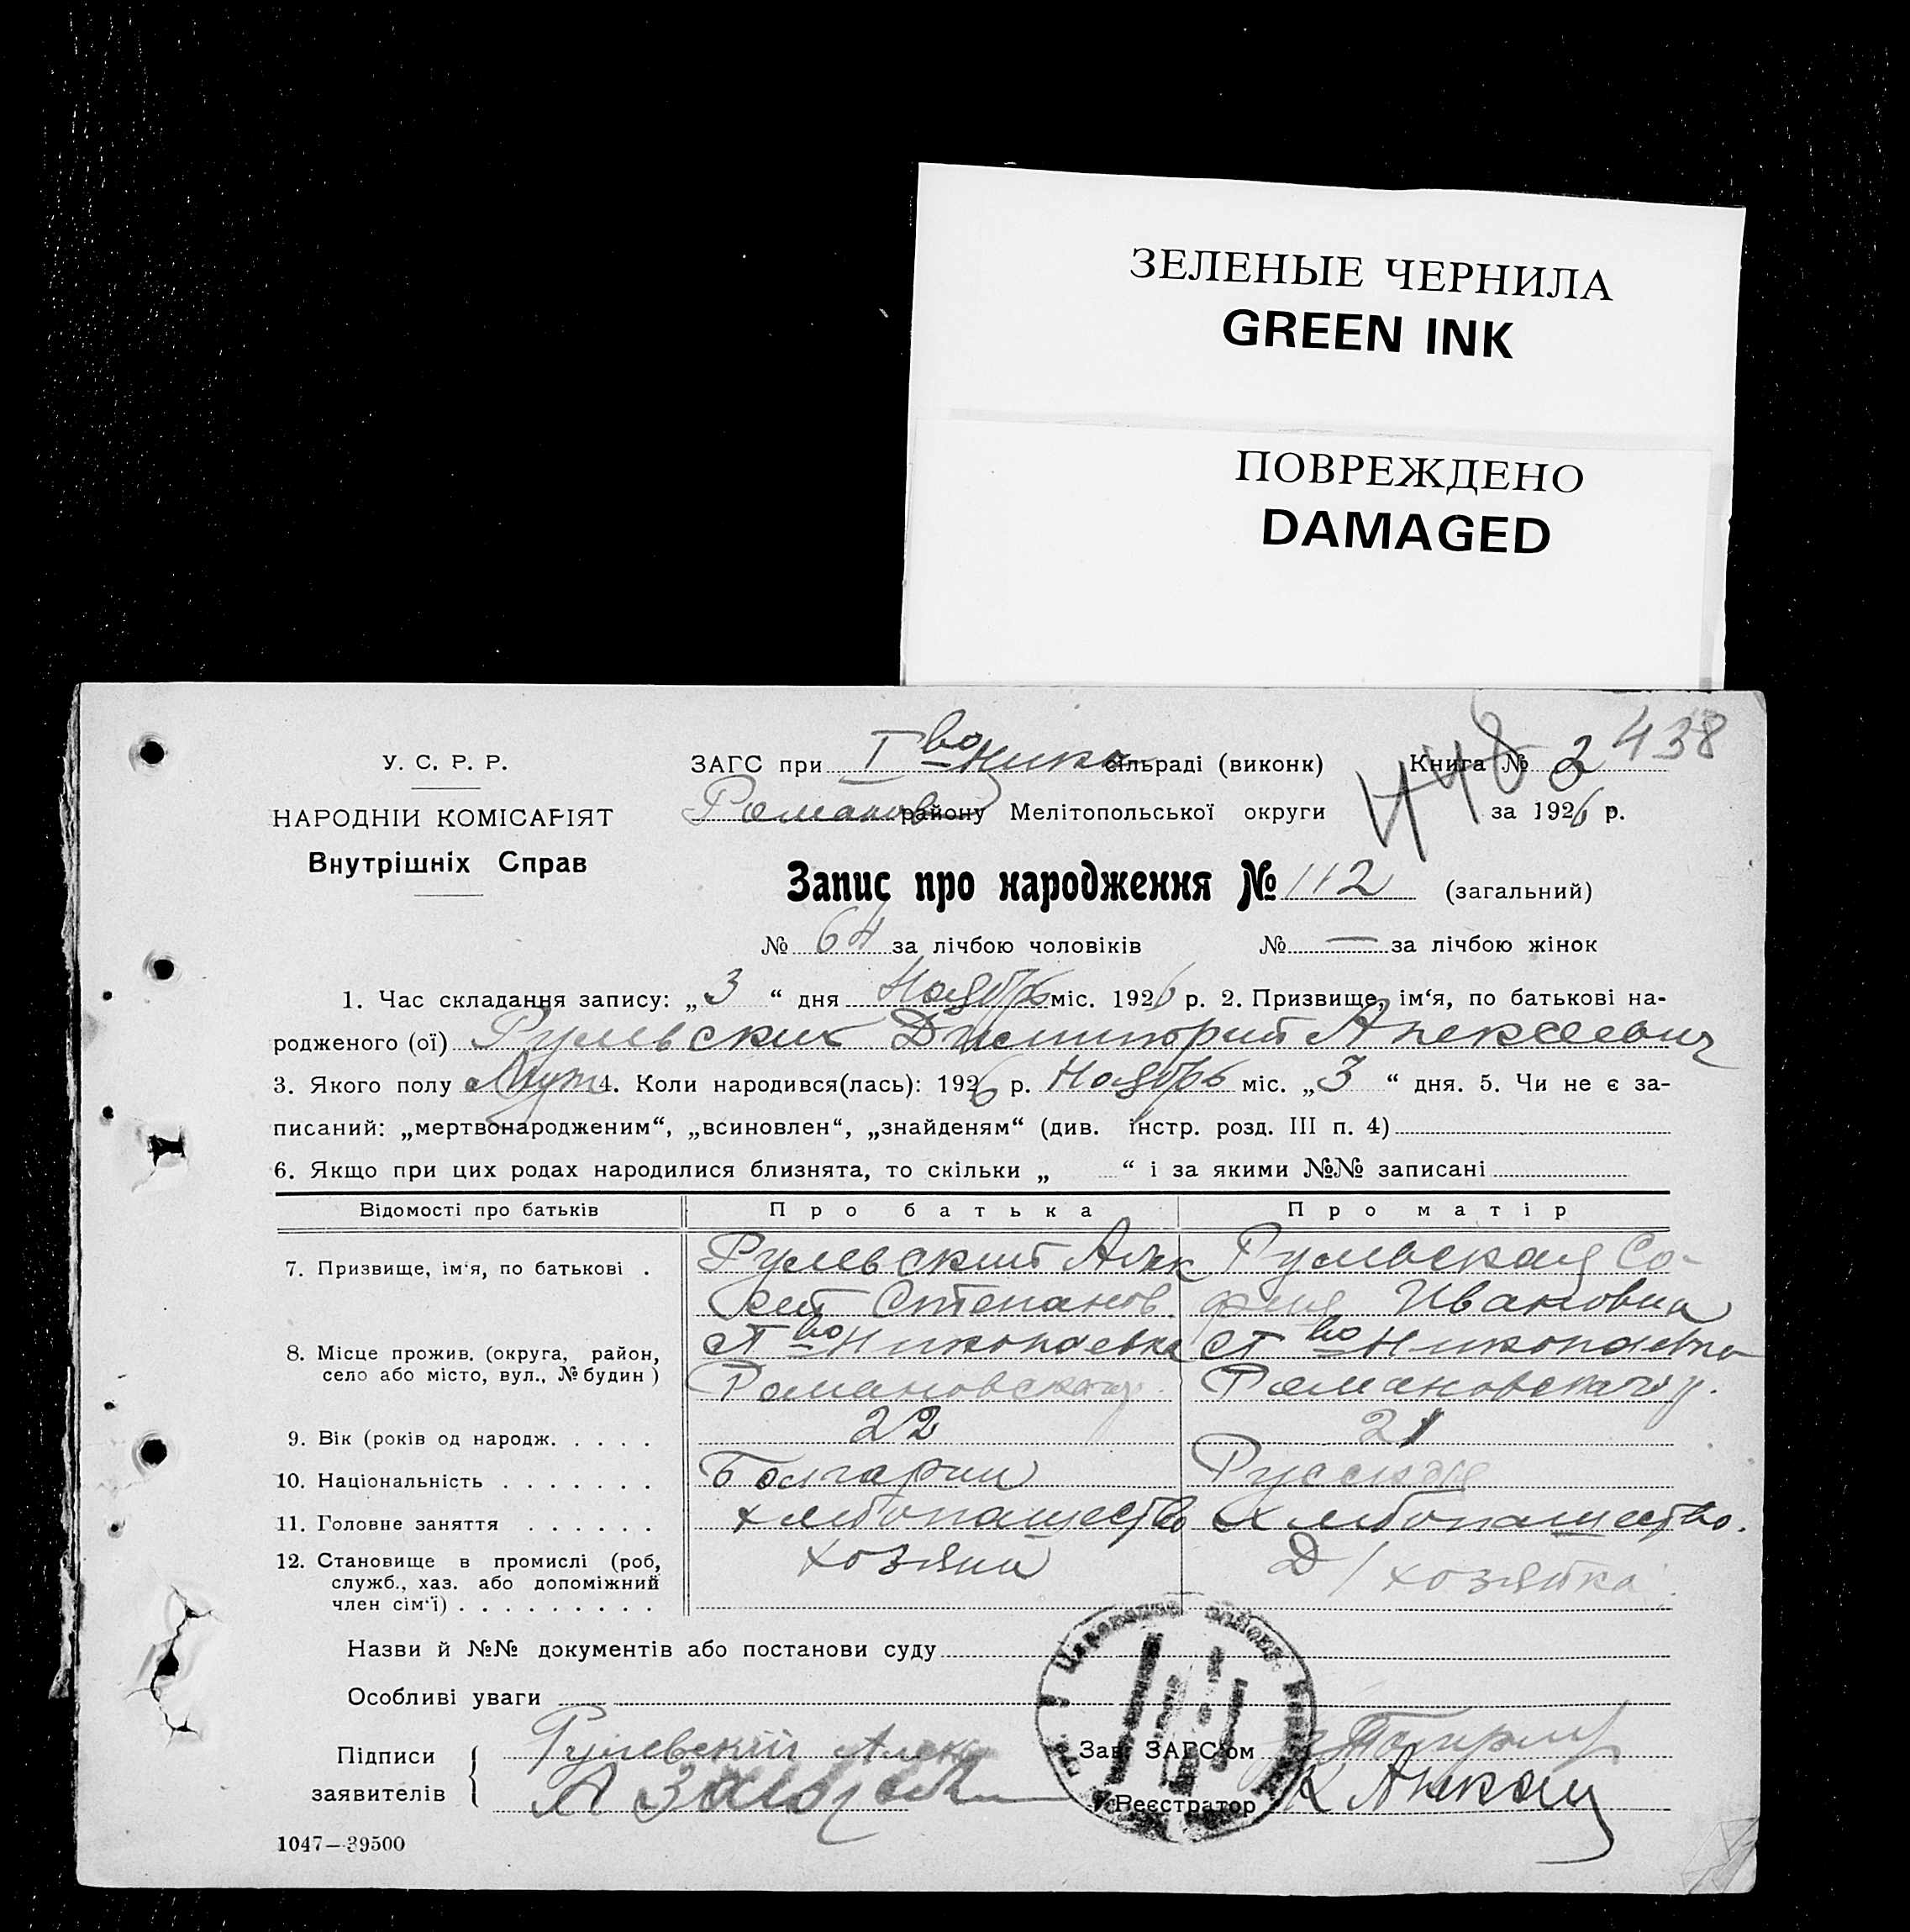 ЗЕЛЕНЫЕ ЧЕРНИЛА
GREEN INK
ПОВРЕЖДЕНО
DAMAGED
438
448
У. С. Р. Р.
НАРОДНІЙ КОМІСАРІЯТ
Внутрішніх Справ
ЗАГС при Iво Нико сільраді (виконк) Книга № 2
Романов району Мелітопольської округи за 1926 р.
Запис про народження № 112 (загальний)
№ 64 за лічбою чоловіків № — за лічбою жінок
1. Час складання запису: „3“ дня Ноябрь міс. 1926 р. 2. Призвище, ім‘я, по батькові на-
родженого (ої) Рулевский Димиторий Алексеевич
3. Якого полу Муж 4. Коли народився(лась): 1926 р. Ноябрь міс. „3“ дня. 5. Чи не є за-
писаний: „мертвонародженим“, „всиновлен“, „знайденям“ (див. інстр. розд. III п. 4)
6. Якщо при цих родах народилися близнята, то скільки „ “ і за якими №№ записані
Відомості про батьків Про батька Про матір
7. Призвище, ім‘я, по батькові . Рулевский Алек Рулевская Со-
сей Степанов. фия Ивановна
8. Місце прожив. (округа, район, во Николаевка во Николаевка
село або місто, вул., № будин) Романовского р. Романовского р.
9. Вік (років од народж. . . . . 22 21
10. Національність . . . . . . . Болгарин Русская
11. Головне заняття . . . . . . хлебопашество хлебопашество.
12. Становище в промислі (роб, хозяин Д/хозяйка
служб., хаз. або допоміжний
член сім‘ї) . . . . . . . . .
Назви й №№ документів або постанови суду
Особливі уваги
Підписи Рулевский Алекс Зав. ЗАГС‘ом
заявителів А Реєстратор
1047—39500